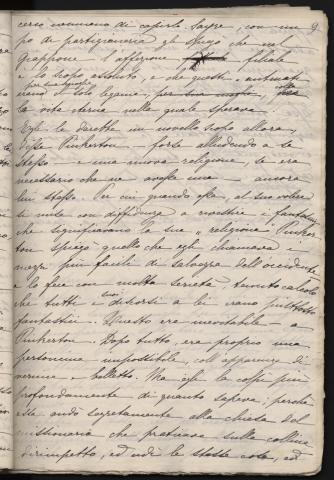 9
cerò nemmeno di capirlo Sayre, con un
po di partigianeria gli spiegò che nel
Giappone l'affezione filiale
è lo scopo assoluto, e che questi antenati
erano il solo legame, per sua moglie, colla
la vita eterna nella quale sperava.
Egli le darebbe un novello scopo allora,
disse Pinkerton — forte alludendo a se
stesso — e una nuova religione, se era
necessario che ne avesse una — ancora
lui stesso. Per cui quando essa, al suo volere
si mise con diffidenza a rivestire i fantasmi
che significavano la sua "religione" Pinker-
ton spiegò quello che egli chiamava i
mezzi più facili di salvezza dell'occidente
e lo fece con molta serietà tenuto calcolo
che tutti i suoi discorsi a lei erano piuttosto
fantastici. Questo era inevitabile — a
Pinkerton. Dopo tutto, era proprio una
personcina impossibile, coll'apparenza di
vernice e belletto. Ma essa lo colpì più
profondamente di quanto sapeva; perchè
essa andò segretamente alla chiesa del
missionario che praticava sulla collina
dirimpetto, ed udì le stesse cose, ed